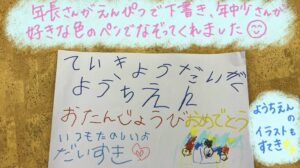 年長さんがえんぴつで下書き、年中少さんが
好きな色のペンでなぞってくれました
ていきょうだいがく
ようちえん
おたんじょうびおめでとう
いつもたのしいよ
だいすき
ようちえんの
イラストも
すてき